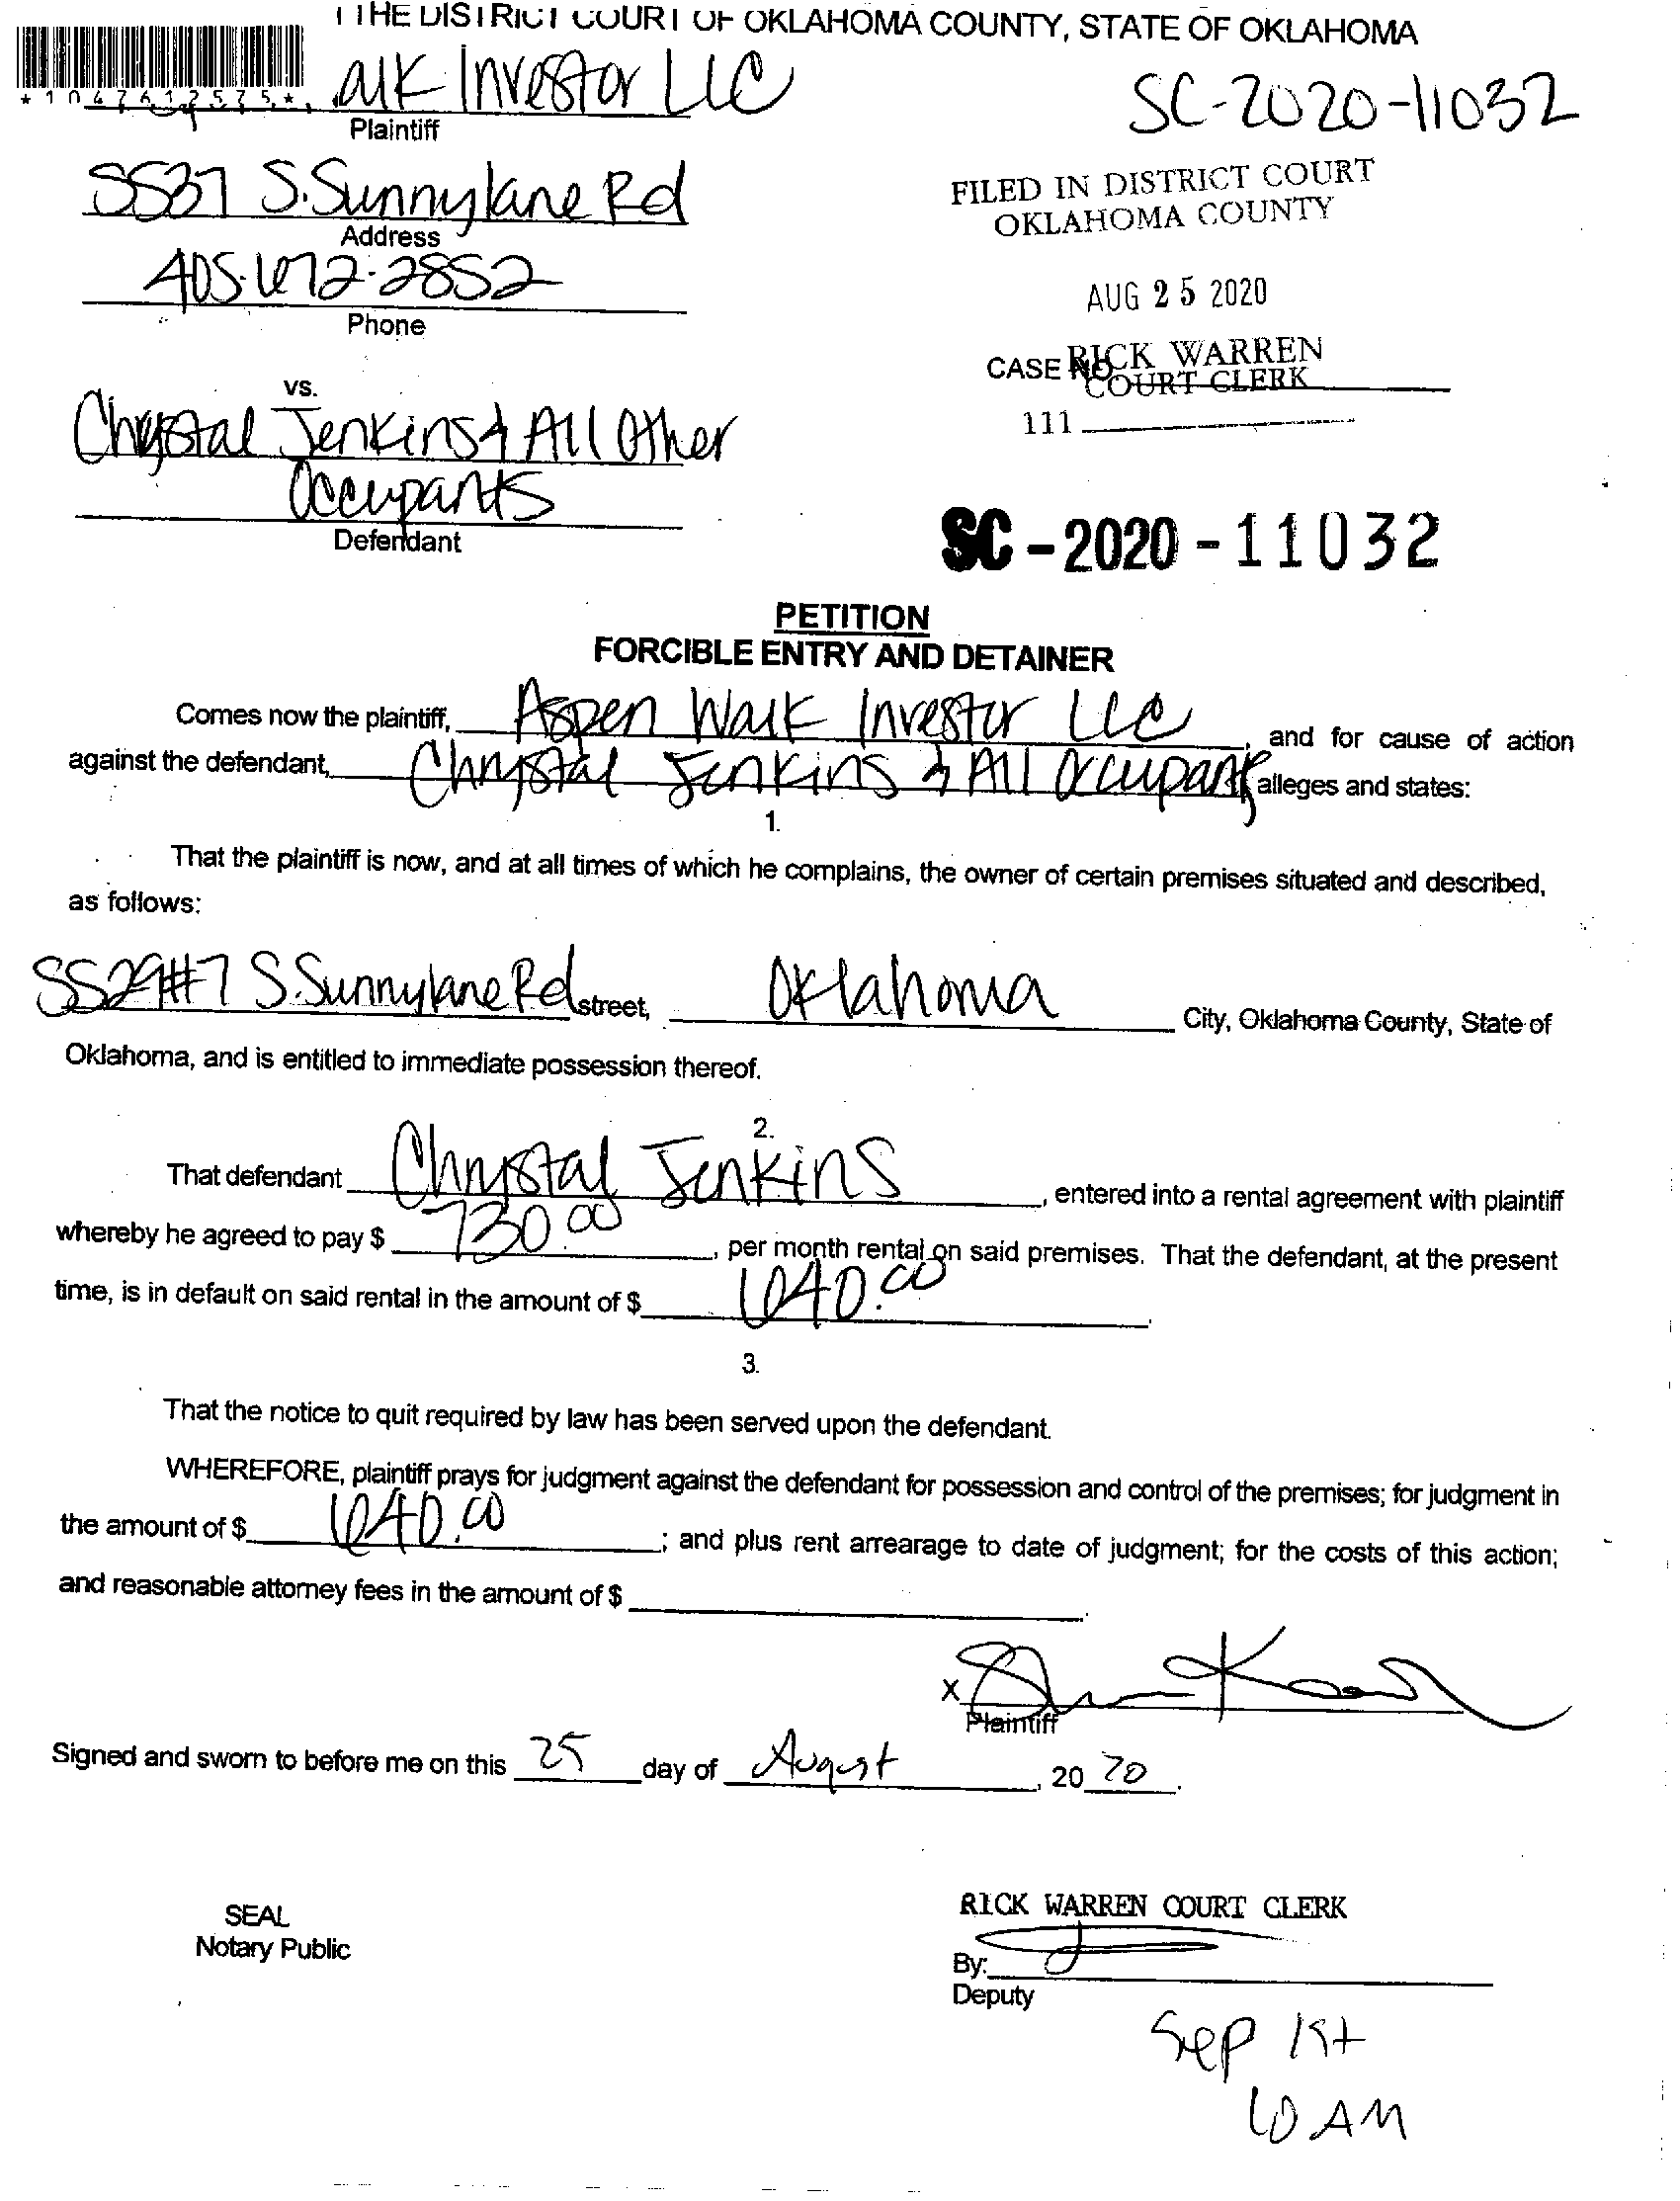 THE DISTRICT COURT OF OKLAHOMA COUNTY, STATE OF OKLAHOMA
*1047612575*
alk Investor LLC
Plaintiff
SC-2020-11032
5537 S. Sunnylane Rd
Address
FILED IN DISTRICT COURT
OKLAHOMA COUNTY
405-672-2852
Phone
AUG 25 2020
RICK WARREN
CASE NO.
COURT CLERK
111
vs.
Chrystal Jenkins & All Other
Occupants
Defendant
SC-2020-11032
PETITION
FORCIBLE ENTRY AND DETAINER
Comes now the plaintiff, Aspen Walk Investor LLC, and for cause of action
against the defendant, Chrystal Jenkins & All Occupants alleges and states:
1.
That the plaintiff is now, and at all times of which he complains, the owner of certain premises situated and described,
as follows:
5529#7 S. Sunnylane Rd street, Oklahoma City, Oklahoma County, State of
Oklahoma, and is entitled to immediate possession thereof.
2.
That defendant Chrystal Jenkins, entered into a rental agreement with plaintiff
whereby he agreed to pay $ 730.00, per month rental on said premises. That the defendant, at the present
time, is in default on said rental in the amount of $ 1040.00.
3.
That the notice to quit required by law has been served upon the defendant.
WHEREFORE, plaintiff prays for judgment against the defendant for possession and control of the premises; for judgment in
the amount of $ 1040.00; and plus rent arrearage to date of judgment; for the costs of this action;
and reasonable attorney fees in the amount of $
X
Plaintiff
Signed and sworn to before me on this 25 day of August, 20 20.
SEAL
Notary Public
RICK WARREN COURT CLERK
By:
Deputy
Sep 1st
10 AM